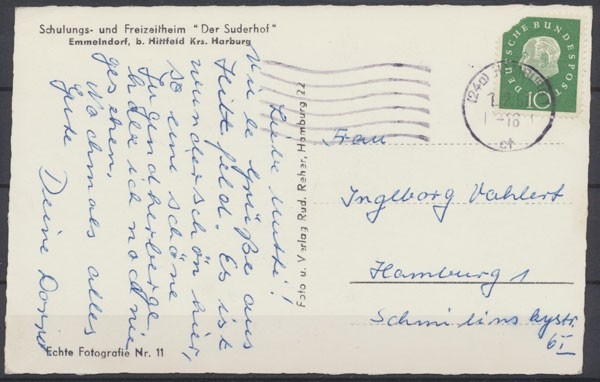 Schulungs- und Freizeitheim "Der Suderhof"
Emmelndorf, b. Hittfeld Krs. Harburg
Liebe Mutti!
Viele Grüße aus
Hittfeld. Es ist
wunderschön hier,
so eine schöne
Jugendherberge
habe ich noch nie
gesehen.
Nochmals alles
Gute
Deine
Foto u. Verlag Rud. Reher, Hamburg 22
Echte Fotografie Nr. 11
DEUTSCHE BUNDESPOST
10
(24a)
-16
Frau
Ingeborg Vahlert
Hamburg 1